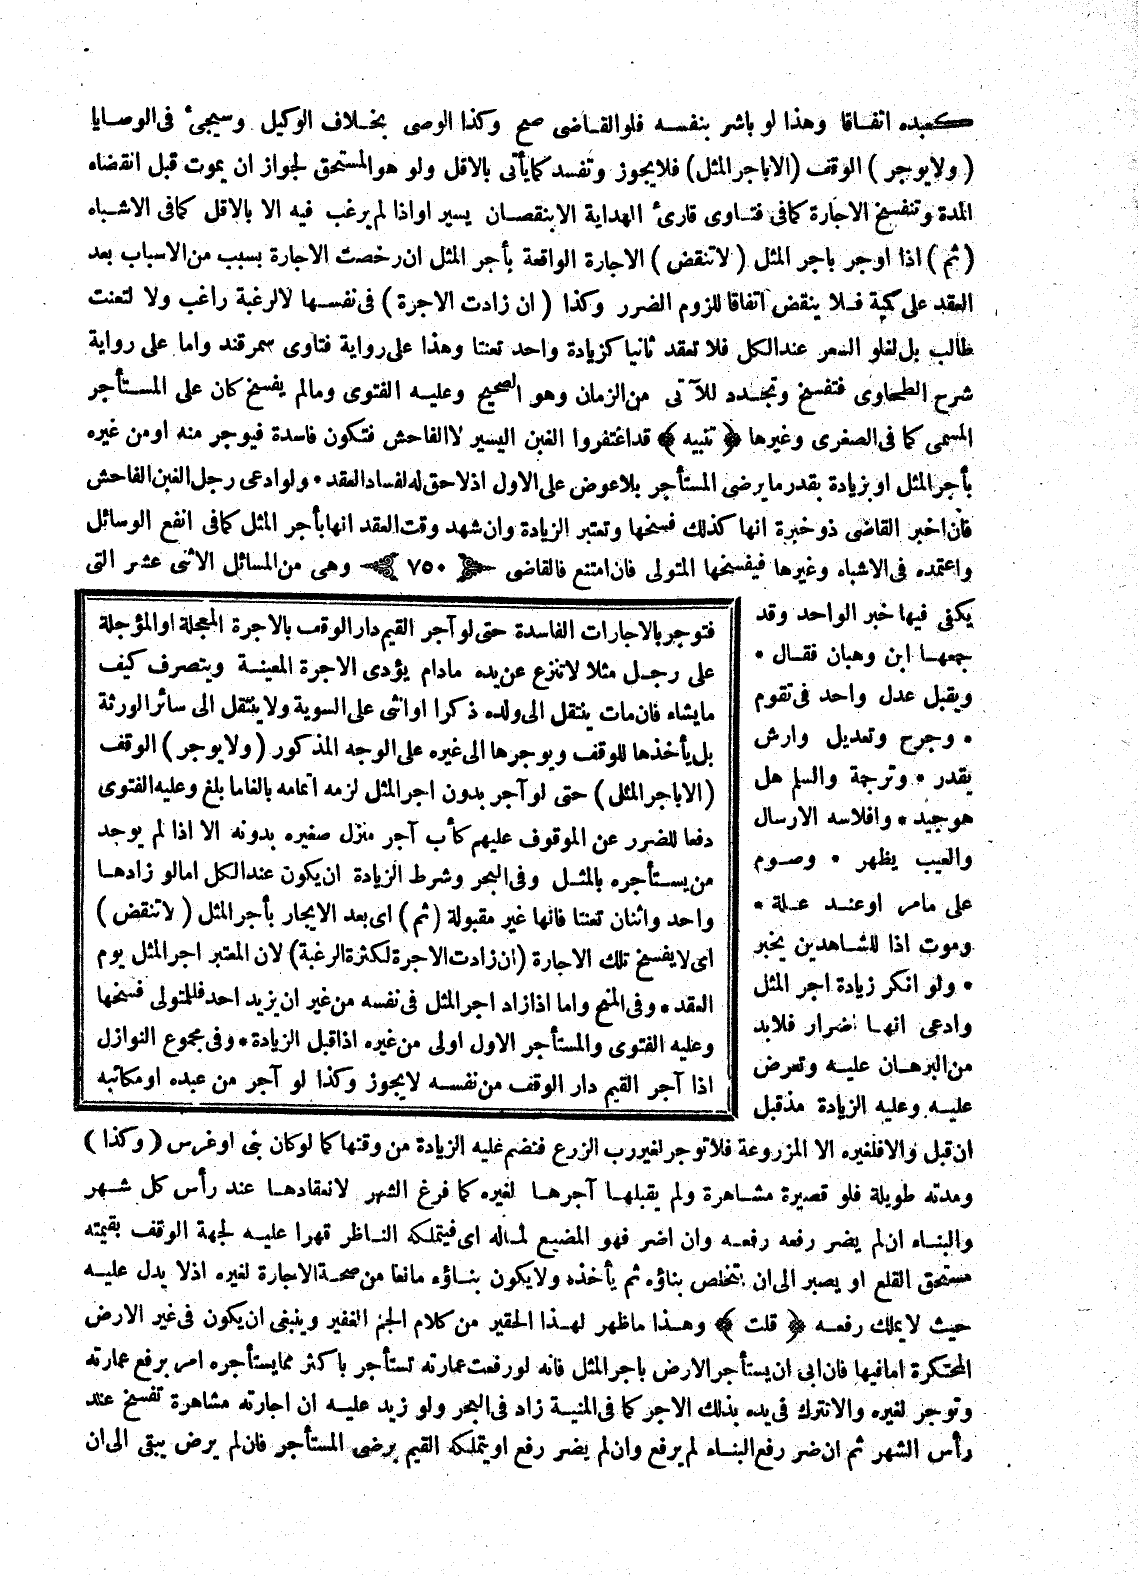 كعبده اتفاقا وهذا لو باشر بنفسه فلو القاضى صح وكذا الوصى بخلاف الوكيل وسيجىء فى الوصايا
(ولا يوجر) الوقف (الا باجر المثل) فلا يجوز وتفسد كما يأتى بالاقل ولو هو المستحق لجواز ان يموت قبل انقضاه
المدة وتنفسخ الاجارة كما فى فتاوى قارئ الهداية الا بنقصان يسير او اذا لم يرغب فيه الا بالاقل كما فى الاشباه
(ثم) اذا اوجر باجر المثل (لا تنقض) الاجارة الواقعة بأجر المثل ان رخصت الاجارة بسبب من الاسباب بعد
العقد على كمية فلا ينقض اتفاقا للزوم الضرر وكذا (ان زادت الاجرة) فى نفسها لا لرغبة راغب ولا لتعنت
طالب بل لغلو السعر عند الكل فلا تعقد ثانيا كزيادة واحد تعنتا وهذا على رواية فتاوى سمرقند واما على رواية
شرح الطحاوى فتفسخ وتجدد للآتى من الزمان وهو الصحيح وعليه الفتوى ومالم يفسخ كان على المستأجر
المسمى كما فى الصغرى وغيرها ﴿ تنبيه ﴾ قد اغتفروا الغبن اليسير لا الفاحش فتكون فاسدة فيوجر منه او من غيره
بأجر المثل او بزيادة بقدر ما يرضى المستأجر بلا عوض على الاول اذ لا حق له لفساد العقد * ولو ادعى رجل الغبن الفاحش
فان اخبر القاضى ذو خبرة انها كذلك فسخها وتعتبر الزيادة وان شهد وقت العقد انها بأجر المثل كما فى انفع الوسائل
واعتمده فى الاشباه وغيرها فيفسخها المتولى فان امتنع فالقاضى ﴿ ٧٥٠ ﴾ وهى من المسائل الاثنى عشر التى
يكفى فيها خبر الواحد وقد
جمعها ابن وهبان فقال *
ويقبل عدل واحد فى تقوم
* وجرح وتعديل وارش
يقدر * وترجمة والسلم هل
هو جيد * وافلاسه الارسال
والعيب يظهر * وصوم
على ما مر او عند علة *
وموت اذا للشاهدين يخبر
* ولو انكر زيادة اجر المثل
وادعى انها اضرار فلابد
من البرهان عليه وتعرض
عليه وعليه الزيادة مذ قبل
فتوجر بالاجارات الفاسدة حتى لو آجر القيم دار الوقف بالاجرة المعجلة او المؤجلة
على رجل مثلا لا تنزع عن يده مادام يؤدى الاجرة المعينة ويتصرف كيف
ما يشاء فان مات ينتقل الى ولده ذكرا او انثى على السوية ولا ينتقل الى سائر الورثة
بل يأخذها للوقف ويوجرها الى غيره على الوجه المذكور (ولا يوجر) الوقف
(الا باجر المثل) حتى لو آجر بدون اجر المثل لزمه اتمامه بالغا ما بلغ وعليه الفتوى
دفعا للضرر عن الموقوف عليهم كأب آجر منزل صغيره بدونه الا اذا لم يوجد
من يستأجره بالمثل وفى البحر وشرط الزيادة ان يكون عند الكل اما لو زادها
واحد واثنان تعنتا فانها غير مقبولة (ثم) اى بعد الايجار بأجر المثل (لا تنقض)
اى لا يفسخ تلك الاجارة (ان زادت الاجرة لكثرة الرغبة) لان المعتبر اجر المثل يوم
العقد * وفى المنح واما اذا زاد اجر المثل فى نفسه من غير ان يزيد احد فللمتولى فسخها
وعليه الفتوى والمستأجر الاول اولى من غيره اذا قبل الزيادة * وفى مجموع النوازل
اذا آجر القيم دار الوقف من نفسه لا يجوز وكذا لو آجر من عبده او مكاتبه
ان قبل والا فلغيره الا المزروعة فلا توجر لغير رب الزرع فتضم عليه الزيادة من وقتها كما لو كان بنى او غرس (وكذا)
ومدته طويلة فلو قصيرة مشاهرة ولم يقبلها آجرها لغيره كما فرغ الشهر لانعقادها عند رأس كل شهر
والبناء ان لم يضر رفعه رفعه وان اضر فهو المضيع لماله اى فيتملكه الناظر قهرا عليه لجهة الوقف بقيمته
مستحق القلع او يصبر الى ان يتخلص بناؤه ثم يأخذه ولا يكون بناؤه مانعا من صحة الاجارة لغيره اذ لا يد عليه
حيث لا يملك رفعه ﴿ قلت ﴾ وهذا ما ظهر لهذا الحقير من كلام الجم الغفير وينبغى ان يكون فى غير الارض
المحتكرة اما فيها فان ابى ان يستأجر الارض باجر المثل فانه لو رفعت عمارته تستأجر باكثر مما يستأجره امر برفع عمارته
وتوجر لغيره والا تترك فى يده بذلك الاجر كما فى المنية زاد فى البحر ولو زيد عليه ان اجارته مشاهرة تفسخ عند
رأس الشهر ثم ان ضر رفع البناء لم يرفع وان لم يضر رفع او يتملكه القيم برضى المستأجر فان لم يرض يبقى الى ان